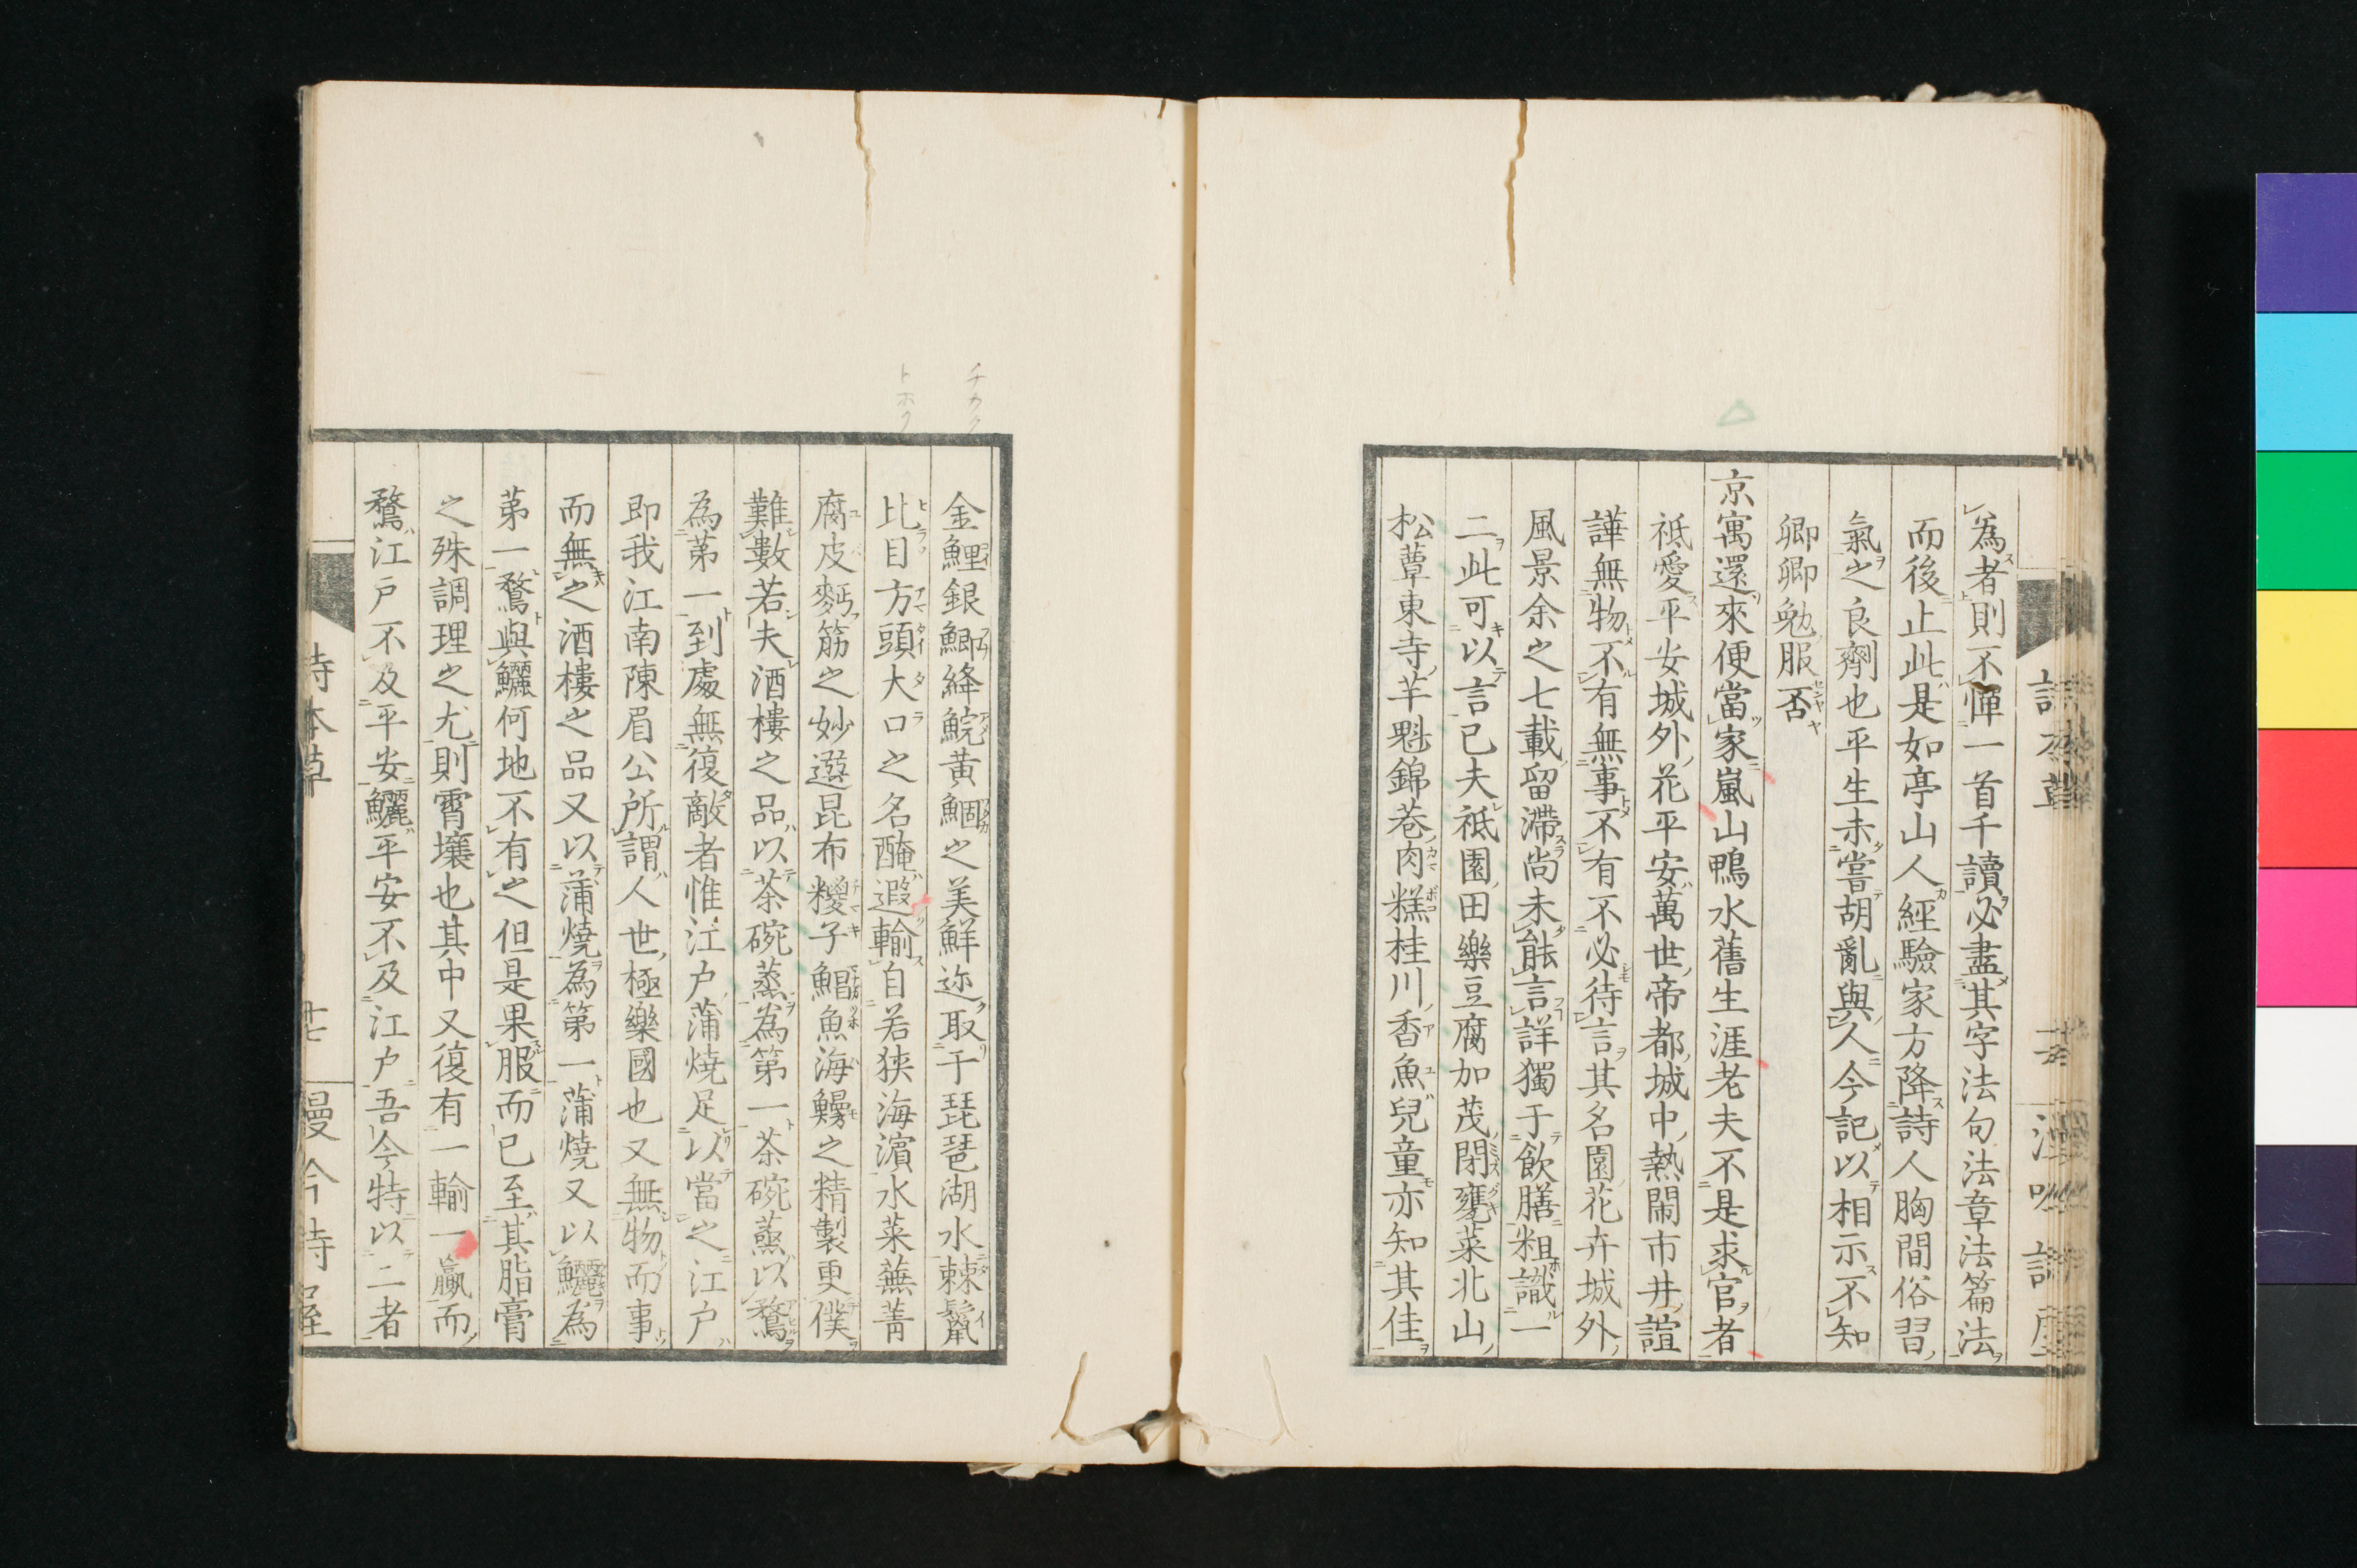 為者則不憚一首千讀必盡其字法句法章法篇法
而後止此是如亭山人經驗家方降詩人胸間俗習
氣之良劑也平生未嘗胡亂與人今記以相示不知
卿卿勉服否
京寓還來便當家嵐山鴨水舊生涯老夫不是求官者
祗愛平安城外花平安萬世帝都城中熱鬧市井諠
譁無物不有無事不有不必待言其名園花卉城外
風景余之七載留滯尚未能言詳獨于飲膳粗識一
二此可以言已夫祗園田樂豆腐加茂閉甕菜北山
松蕈東寺芋魁錦巷肉糕桂川香魚兒童亦知其佳
金鯉銀鯽絳鯇黃鯝之美鮮迩取于琵琶湖水棘鬣
比目方頭大口之名醃遐輸自若狭海濱水菜蕪菁
腐皮麪筋之妙選昆布糉子鯧魚海鰻之精製更僕
難數若夫酒樓之品以茶碗蒸為第一茶碗蒸以鶩
為第一到處無復敵者惟江戶蒲燒足以當之江戶
即我江南陳眉公所謂人世極樂國也又無物而事
而無之酒樓之品又以蒲燒為第一蒲燒又以鱺為
第一鶩與鱺何地不有之但是果服而已至其脂膏
之殊調理之尤則霄壤也其中又復有一輸一贏而
鶩江戶不及平安鱺平安不及江戶吾今特以二者
詩本草
十七